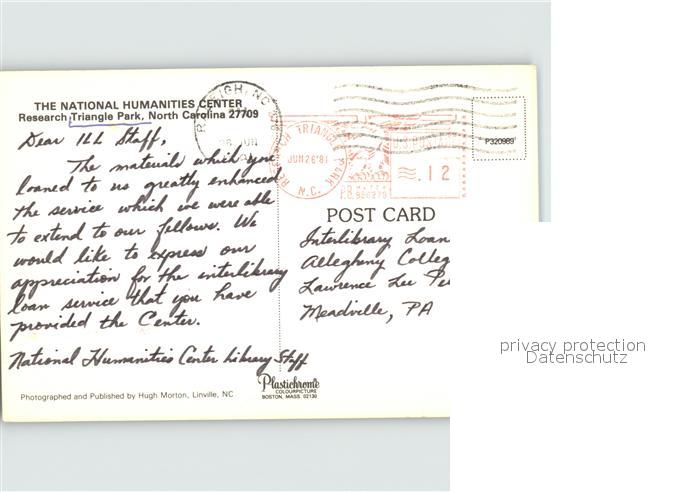 THE NATIONAL HUMANITIES CENTER
Research Triangle Park, North Carolina 27709
Dear ILL Staff,
The materials which you
loaned to us greatly enhanced
the service which we were able
to extend to our fellows. We
would like to express our
appreciation for the interlibrary
loan service that you have
provided the Center.
National Humanities Center Library Staff
Photographed and Published by Hugh Morton, Linville, NC
Plastichrome
COLOURPICTURE
BOSTON, MASS. 02130
RALEIGH, NC
RESEARCH TRIANGLE PARK
JUN 26 '81
N.C.
.12
P320989
POST CARD
Interlibrary Loan
Allegheny Colleg
Lawrence Lee Pe
Meadville, PA
privacy protection
Datenschutz